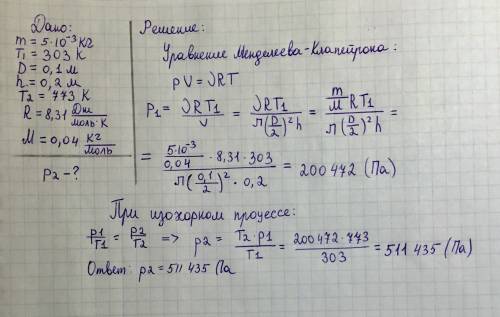 Дано:
m = 5·10⁻³ кг
T₁ = 303 К
D = 0,1 м
h = 0,2 м
T₂ = 773 К
R = 8,31 Дж/моль·К
M = 0,04 кг/моль
p₂ - ?
Решение:
Уравнение Менделеева-Клапейрона:
pV = νRT
p₁ = νRT₁/V = νRT₁/π(D/2)²h = m/M RT₁/π(D/2)²h =
= 5·10⁻³/0,04 · 8,31 · 303/π(0,1/2)² · 0,2 = 200 472 (Па)
При изохорном процессе:
p₁/T₁ = p₂/T₂ => p₂ = T₂·p₁/T₁ = 200 472 · 773/303 = 511 435 (Па)
Ответ: p₂ = 511 435 Па